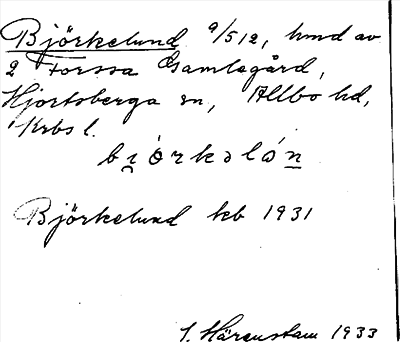 Björkelund a/512, hmd av
2 Forssa Gamlegård,
Hjortsberga sn, Allbo hd,
Krbs l.
bi̯órkəlòn
Björkelund kb 1931
S. Härenstam 1933